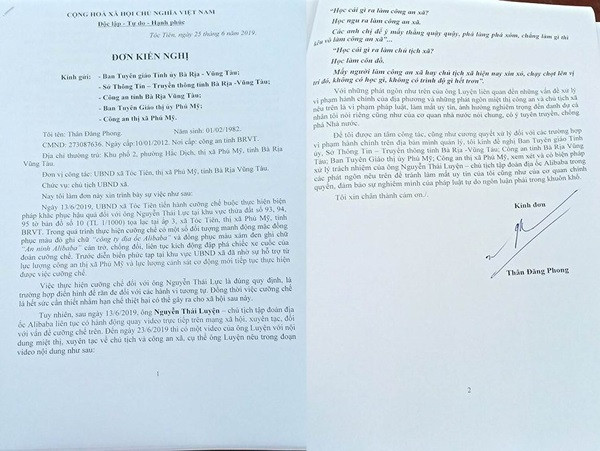 CỘNG HOÀ XÃ HỘI CHỦ NGHĨA VIỆT NAM
Độc lập - Tự do - Hạnh phúc
Tóc Tiên, ngày 25 tháng 6 năm 2019
ĐƠN KIẾN NGHỊ
Kính gửi: - Ban Tuyên giáo Tỉnh ủy Bà Rịa - Vũng Tàu;
- Sở Thông Tin – Truyền thông tỉnh Bà Rịa -Vũng Tàu;
- Công an tỉnh Bà Rịa Vũng Tàu;
- Ban Tuyên Giáo thị ủy Phú Mỹ;
- Công an thị xã Phú Mỹ.
Tôi tên: Thân Đăng Phong. Năm sinh: 01/02/1982.
CMND: 273087636. Ngày cấp:10/01/2012. Nơi cấp: công an tỉnh BRVT.
Địa chỉ thường trú: Khu phố 2, phường Hắc Dịch, thị xã Phú Mỹ, tỉnh Bà Rịa
Vũng Tàu.
Đơn vị công tác: UBND xã Tóc Tiên, thị xã Phú Mỹ, tỉnh Bà Rịa Vũng Tàu.
Chức vụ: chủ tịch UBND xã.
Nay tôi làm đơn này xin trình bày sự việc như sau:
Ngày 13/6/2019, UBND xã Tóc Tiên tiến hành cưỡng chế buộc thực hiện biện
pháp khắc phục hậu quả đối với ông Nguyễn Thái Lực tại khu vực thửa đất số 93, 94,
95 tờ bản đồ số 10 (TL 1/1000) tọa lạc tại ấp 3, xã Tóc Tiên, thị xã Phú Mỹ, tỉnh
BRVT. Trong quá trình thực hiện cưỡng chế có một số đối tượng manh động mặc đồng
phục màu đỏ ghi chữ "công ty địa ốc Alibaba" và đồng phục màu xám đen ghi chữ
"An ninh Alibaba" cản trở, chống đối, liên tục kích động đập phá chiếc xe cuốc của
đoàn cưỡng chế. Trước diễn biến phức tạp tại khu vực UBND xã đã nhờ sự hỗ trợ từ
lực lượng công an thị xã Phú Mỹ và lực lượng cảnh sát cơ động mới tiếp tục thực hiện
được việc cưỡng chế.
Việc thực hiện cưỡng chế đối với ông Nguyễn Thái Lực là đúng quy định, là
trường hợp điển hình để răn đe đối với các hành vi tương tự. Đồng thời việc cưỡng chế
là hết sức cần thiết nhằm hạn chế thiệt hại có thể gây ra cho xã hội sau này.
Tuy nhiên, sau ngày 13/6/2019, ông Nguyễn Thái Luyện – chủ tịch tập đoàn địa
ốc Alibaba liên tục có hành động quay video trực tiếp trên mạng xã hội, xuyên tạc, đối
với vấn đề cưỡng chế trên. Đến ngày 23/6/2019 thì có một video của ông Luyện với nội
dung miệt thị, xuyên tạc về chủ tịch và công an xã, cụ thể ông Luyện nêu trong đoạn
video nội dung như sau:
1
"Học cái gì ra làm công an xã.
Học ngu ra làm công an xã.
Các anh chị để ý mấy thằng quậy quậy, phá làng phá xóm, chẳng làm gì thì
kêu vô làm công an xã"...
"Học cái gì ra làm chủ tịch xã?
Học làm côn đồ.
Mấy người làm công an xã hay chủ tịch xã hiện nay xin xỏ, chạy chọt lên vị
trí đó, không có học gì, không có trình độ gì hết trơn".
Với những phát ngôn như trên của ông Luyện liên quan đến những vấn đề xử lý
vi phạm hành chính của địa phương và những phát ngôn miệt thị công an và chủ tịch xã
nêu trên là vi phạm pháp luật, làm mất uy tín, ảnh hưởng nghiêm trọng đến danh dự cá
nhân tôi nói riêng cũng như của cơ quan nhà nước nói chung, có ý tuyên truyền, chống
phá Nhà nước.
Để tôi được an tâm công tác, cũng như cương quyết xử lý đối với các trường hợp
vi phạm hành chính trên địa bàn mình quản lý, tôi kính đề nghị Ban Tuyên giáo Tỉnh
ủy, Sở Thông Tin – Truyền thông tỉnh Bà Rịa -Vũng Tàu; Công an tỉnh Bà Rịa Vũng
Tàu; Ban Tuyên Giáo thị ủy Phú Mỹ; Công an thị xã Phú Mỹ, xem xét và có biện pháp
xử lý trách nhiệm của ông Nguyễn Thái Luyện – chủ tịch tập đoàn địa ốc Alibaba trong
các phát ngôn nêu trên để tránh làm mất uy tín của tôi cũng như của cơ quan chính
quyền, đảm bảo sự nghiêm minh của pháp luật tự do ngôn luận phải trong khuôn khổ.
Tôi xin chân thành cảm ơn./.
Kính đơn
Thân Đăng Phong
2